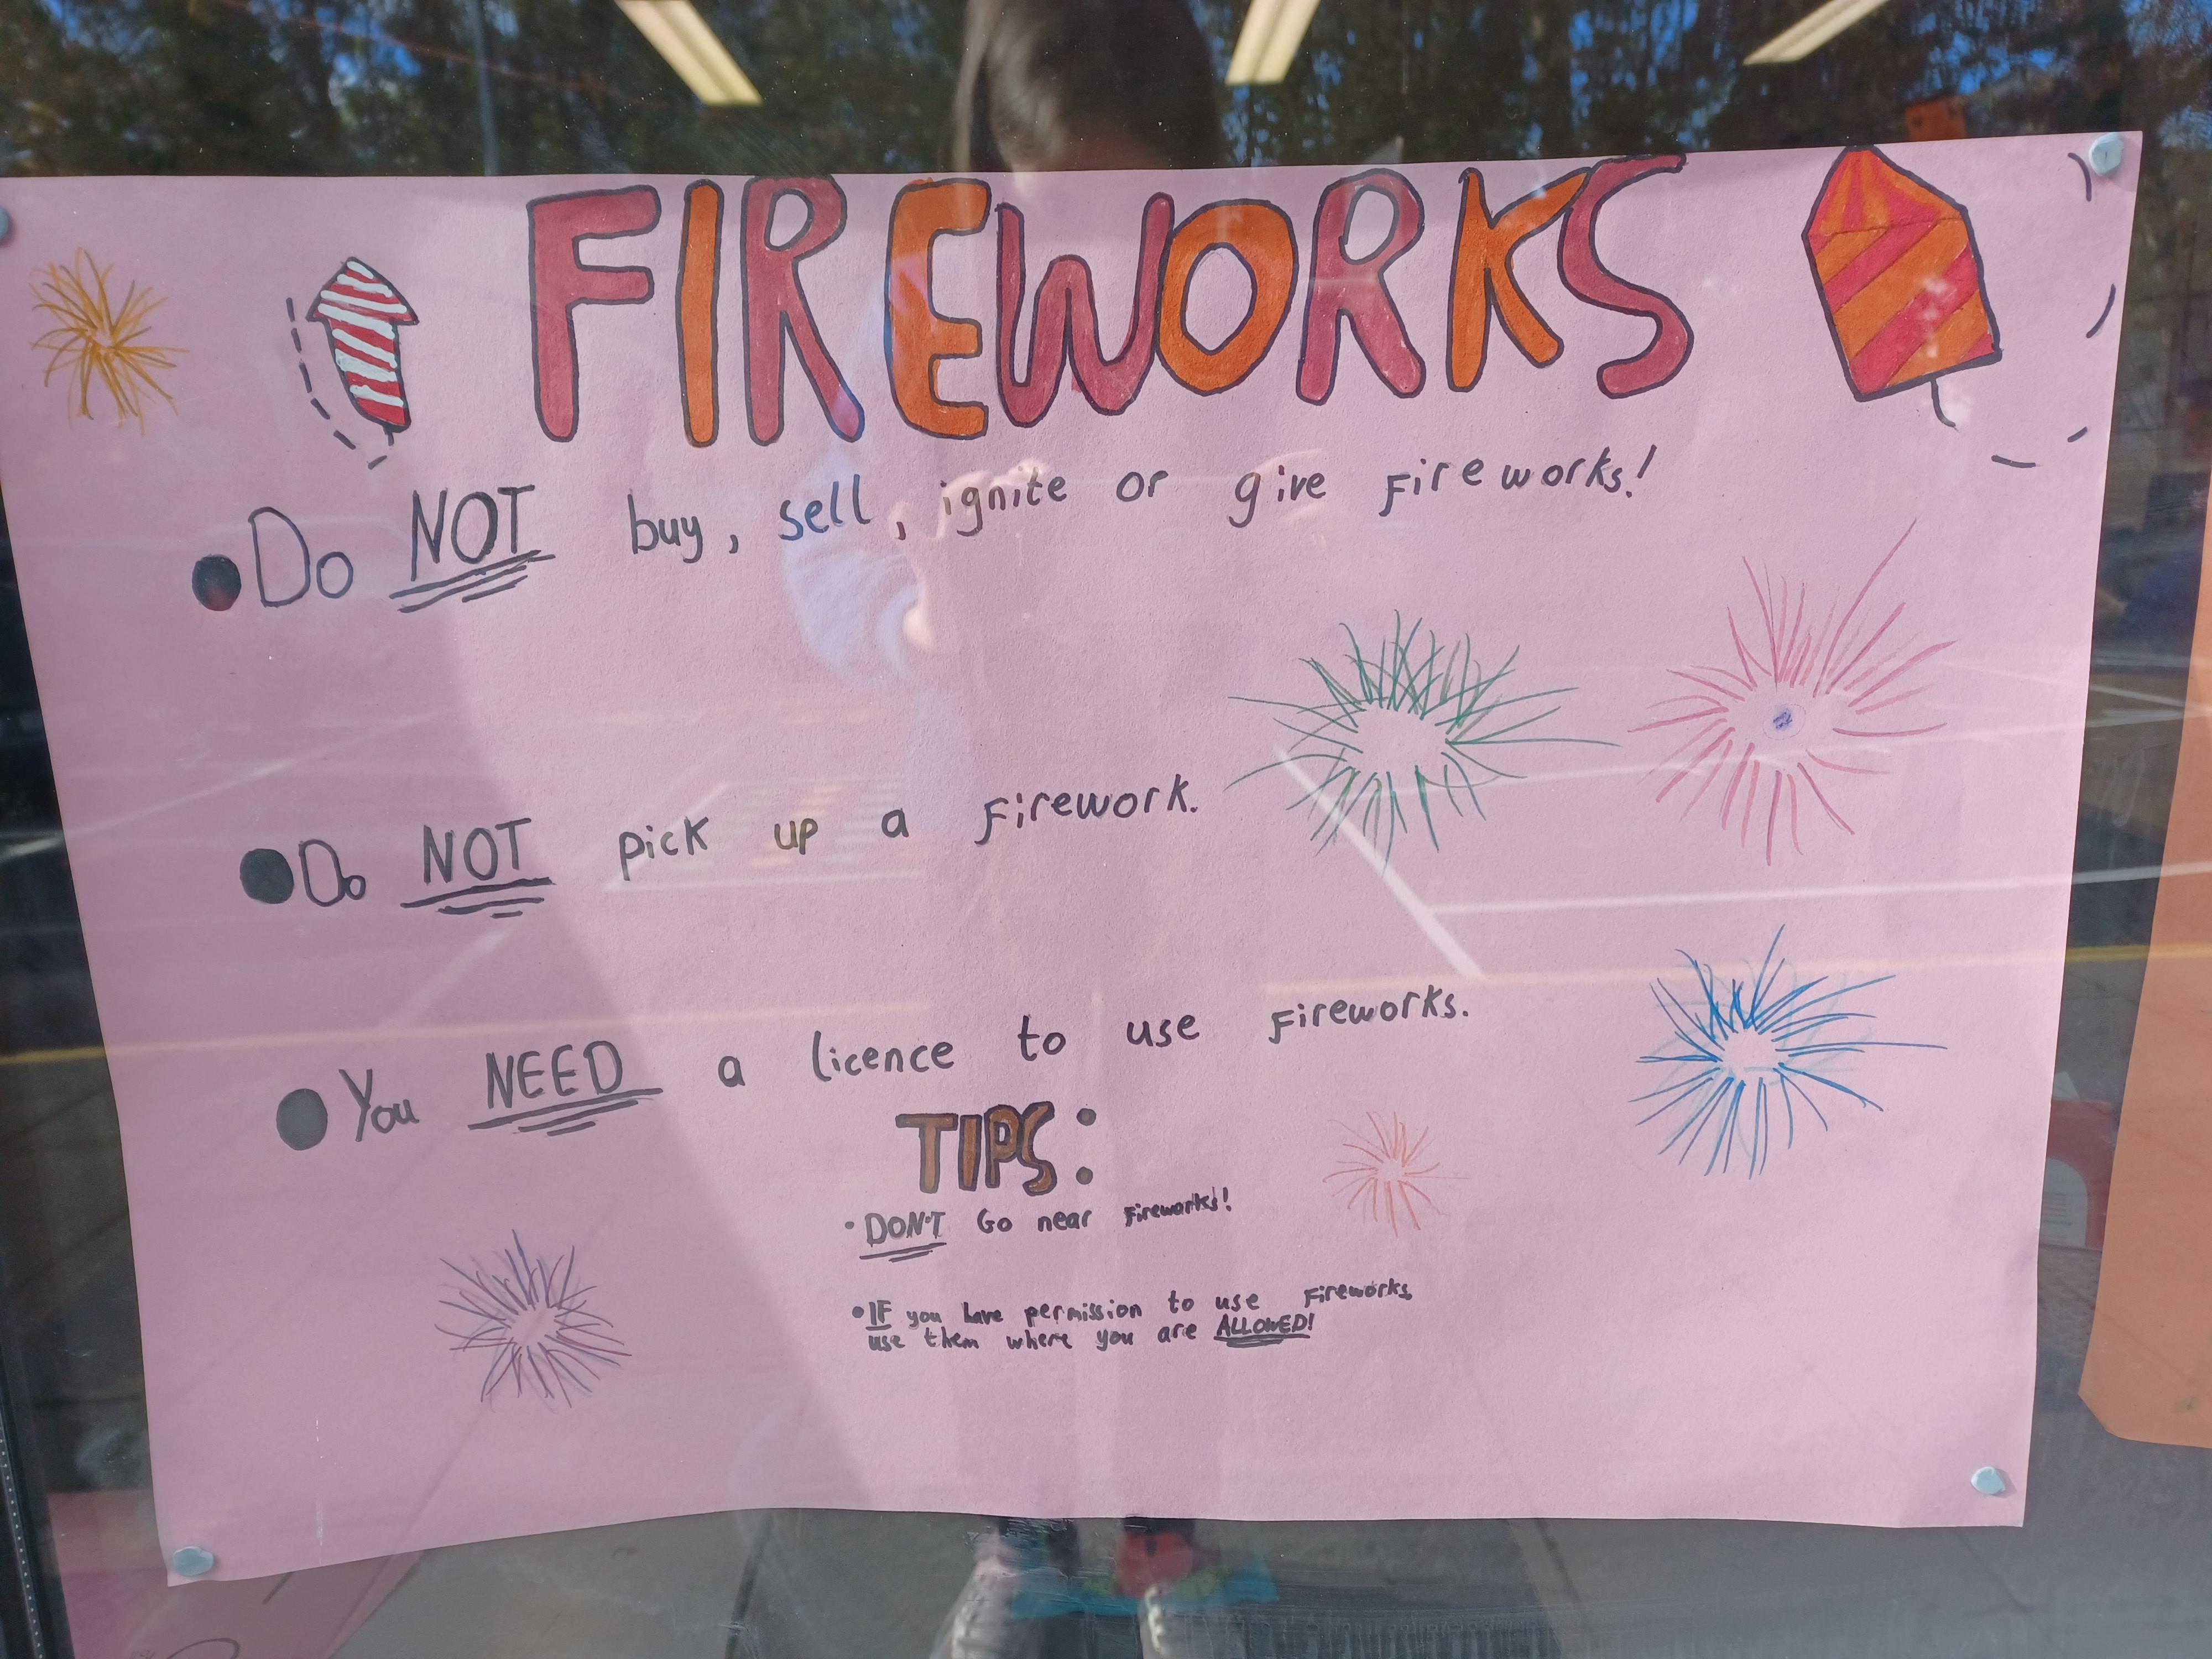 FIREWORKS
• Do NOT buy, sell, ignite or give Fireworks!
• Do NOT pick up a Firework.
• You NEED a licence to use Fireworks.
TIPS:
• DON'T Go near Fireworks!
• IF you have permission to use Fireworks,
use them where you are ALLOWED!